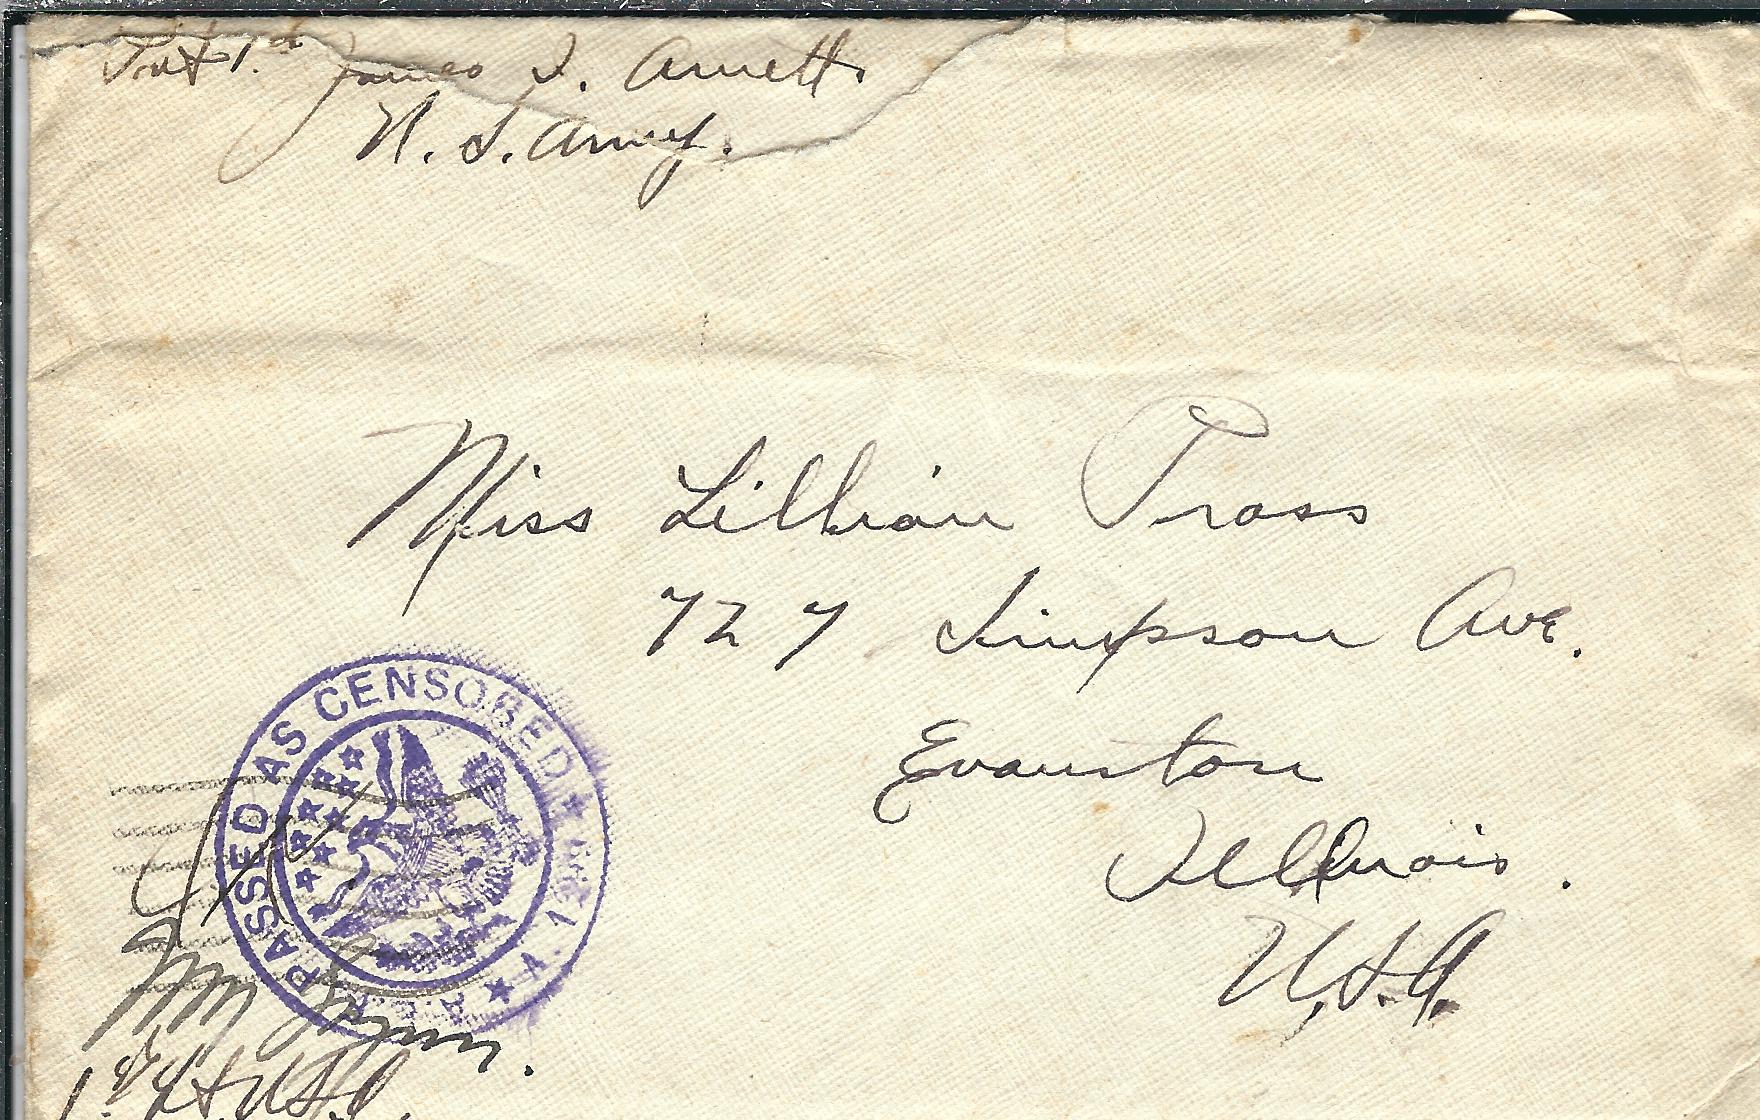 James I. Arnett.
U. S. Army.
Miss Lillian Prass
727 Simpson Ave.
Evanston
Illinois.
U.S.A.
PASSED AS CENSORED
A.E.F.
1st Lt. U.S.A.